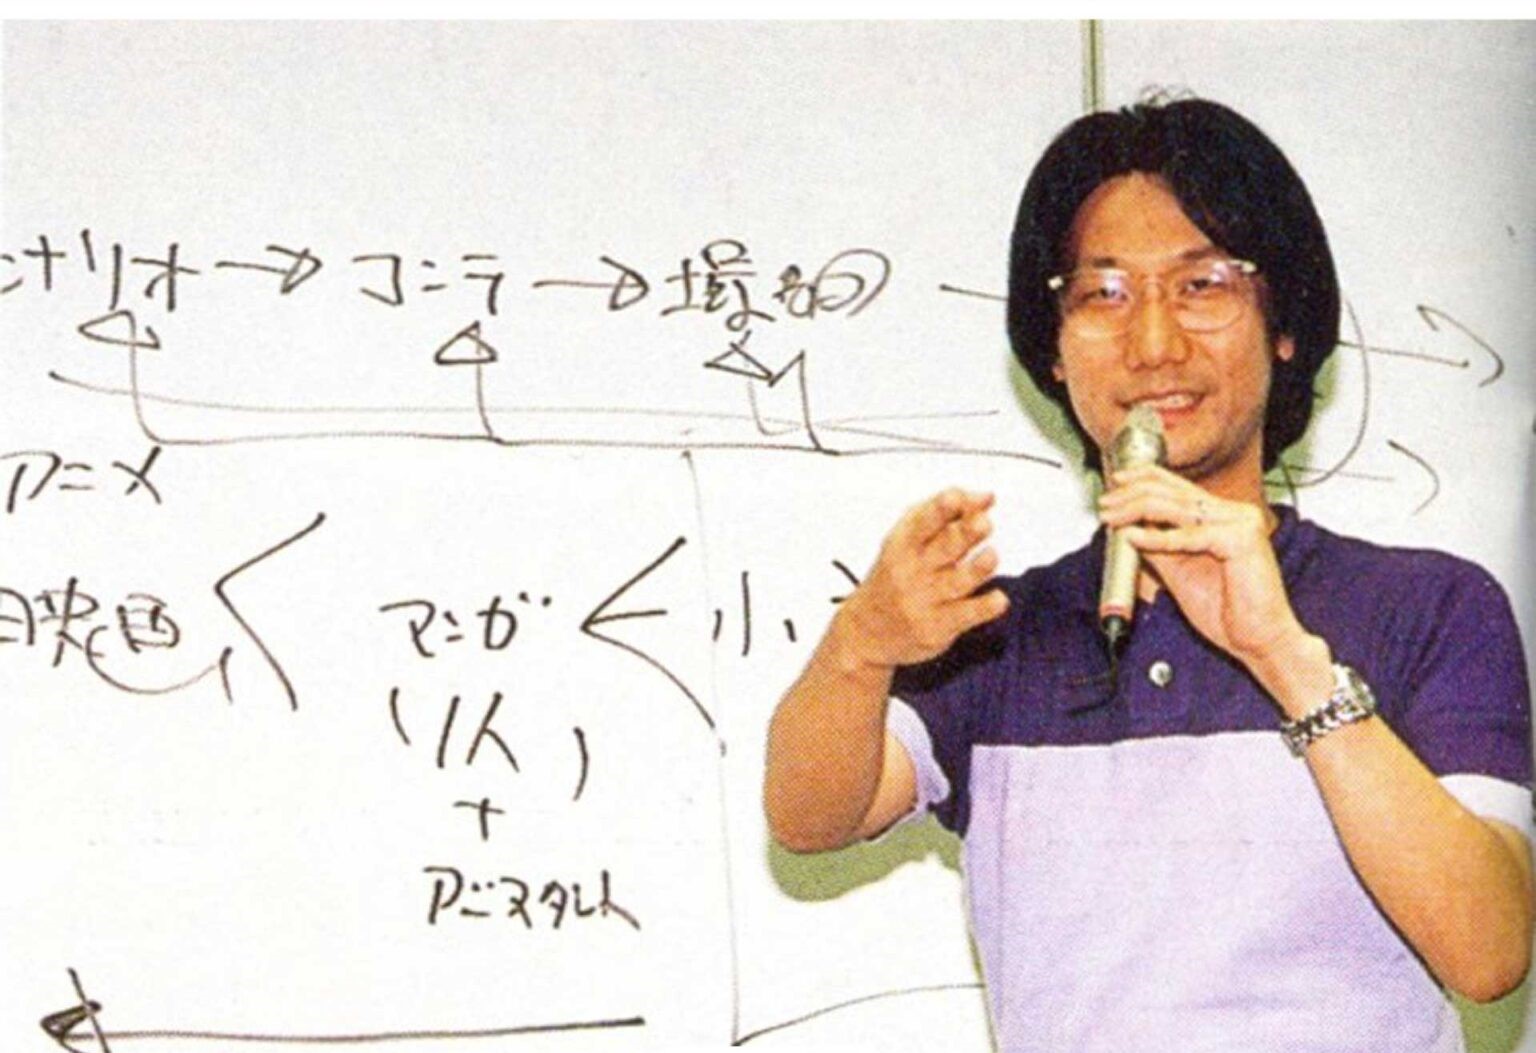 ナリオ → コンテ → 撮影
アニメ
映画 < マンガ < 小
(1人)
+
アシスタント